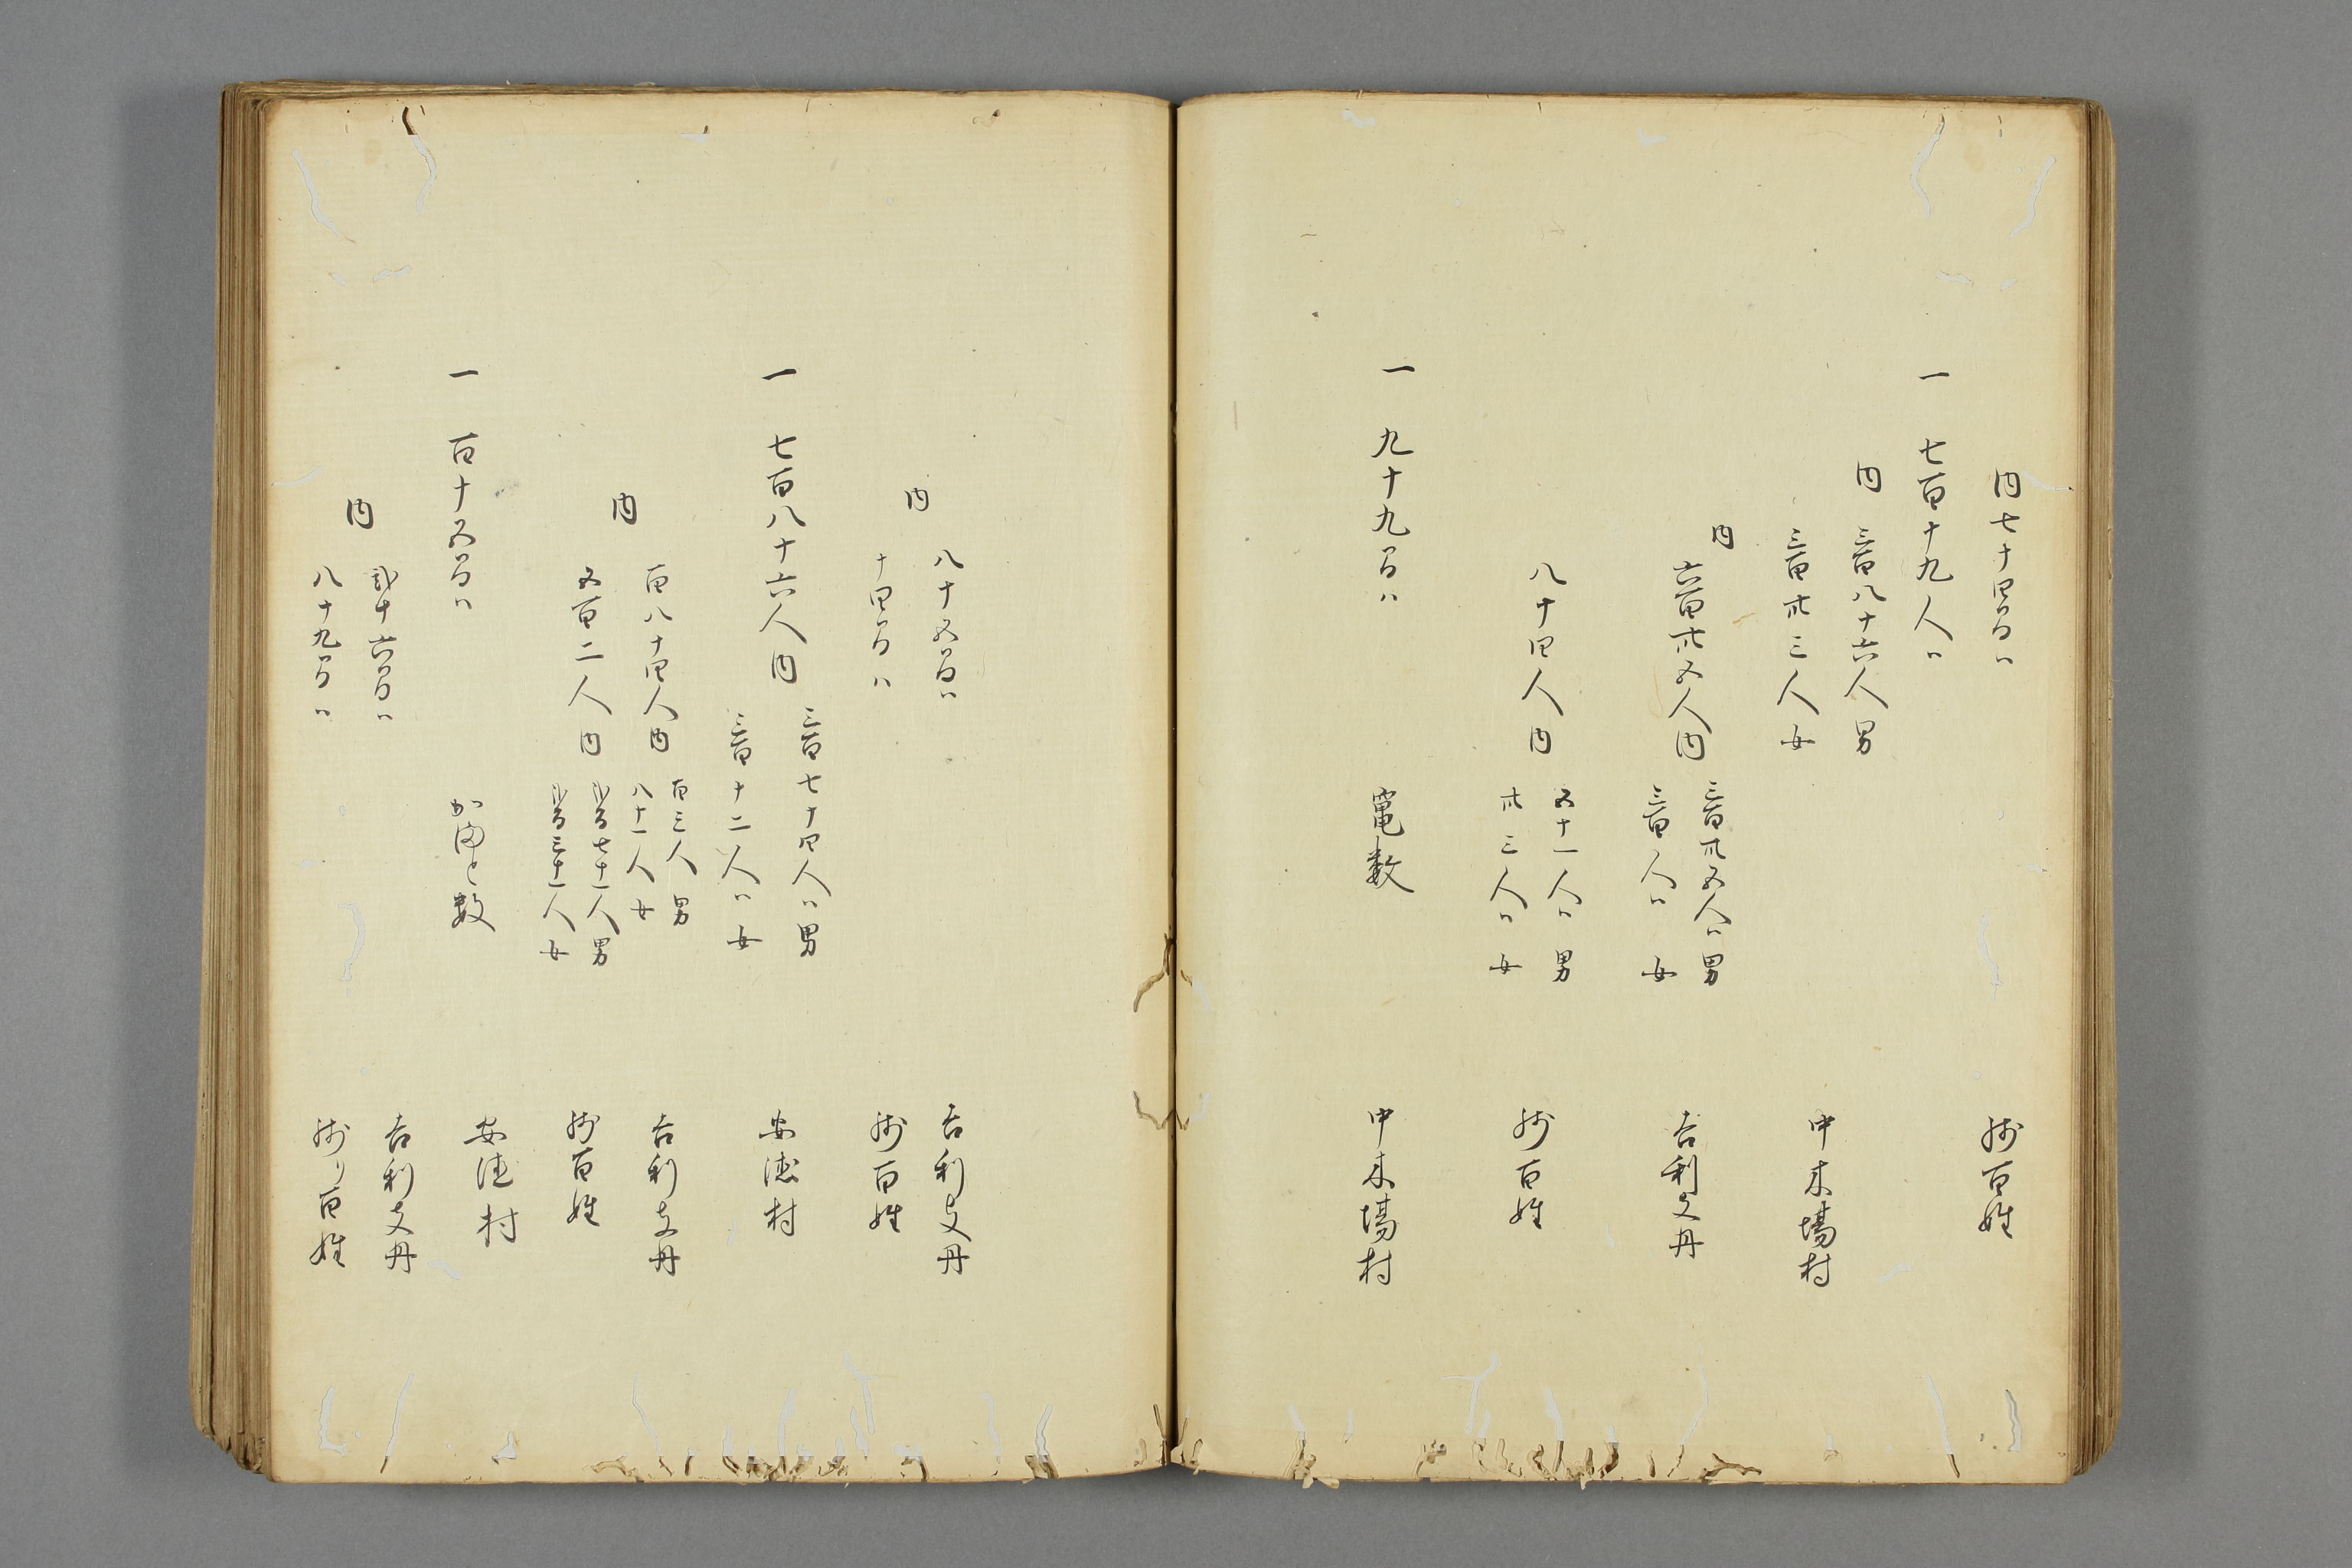 内七十四間ハ 残百姓
一 七百十九人ハ 中木場村
内 三百八十六人男
三百卅三人女
内 六百卅五人内 吉利支丹
三百卅五人ハ男
三百人ハ女
八十四人内 残百姓
五十一人ハ男
卅三人ハ女
一 九十九間ハ 竈数 中木場村
内 八十五間ハ 吉利支丹
十四間ハ 残百姓
一 七百八十六人内 安徳村
三百七十四人ハ男
三百十二人ハ女
内 百八十四人内 吉利支丹
百三人男
八十一人女
五百二人内 残百姓
弐百七十一人男
弐百三十一人女
一 百十五間ハ かまと数 安徳村
内 弐十六間ハ 吉利支丹
八十九間ハ 残り百姓